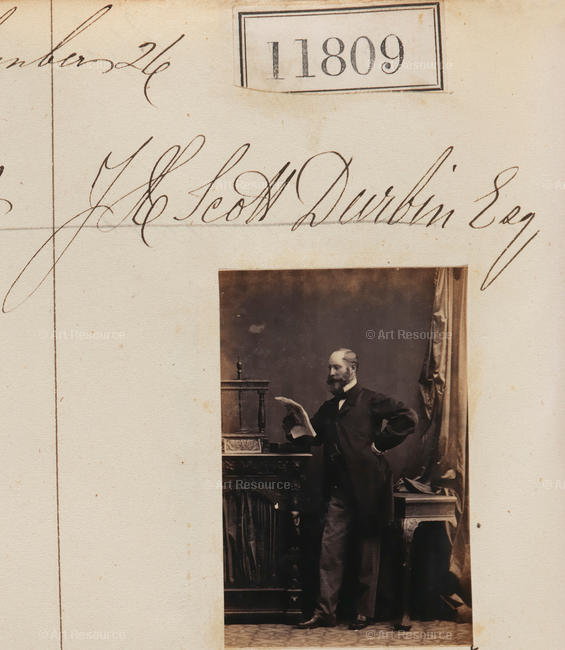 26
11809
J H Scott Durbin Esq
© Art Resource
© Art Resource
© Art Resource
© Art Resource
© Art Resource
© Art Resource